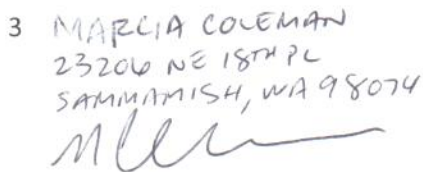 3 MARCIA COLEMAN
23206 NE 18TH PL
SAMMAMISH, WA 98074